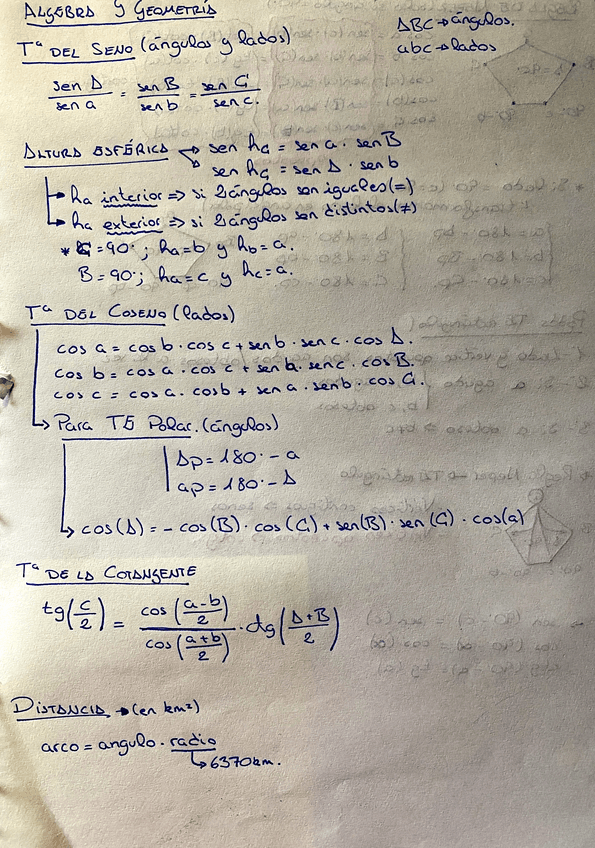 ALGEBRA Y GEOMETRÍA
ABC → ángulos.
abc → lados
Tª DEL SENO (ángulos y lados)
sen A / sen a = sen B / sen b = sen C / sen c.
ALTURA ESFÉRICA → sen hc = sen a · sen B
→ sen hc = sen A · sen b
→ ha interior => si 2 ángulos son iguales (=)
→ ha exterior => si 2 ángulos son distintos (≠)
* C = 90º; ha = b y hb = a.
B = 90º; ha = c y hc = a.
Tª DEL COSENO (lados)
cos a = cos b · cos c + sen b · sen c · cos A.
cos b = cos a · cos c + sen a · sen c · cos B.
cos c = cos a · cos b + sen a · sen b · cos C.
→ Para TE Polar. (ángulos)
Ap = 180º - a
ap = 180º - A
→ cos (A) = - cos (B) · cos (C) + sen (B) · sen (C) · cos (a)
Tª DE LA COTANGENTE
tg (c/2) = cos (a-b / 2) / cos (a+b / 2) · ctg (A+B / 2)
DISTANCIA → (en km²)
arco = angulo · radio
↳ 6370 km.